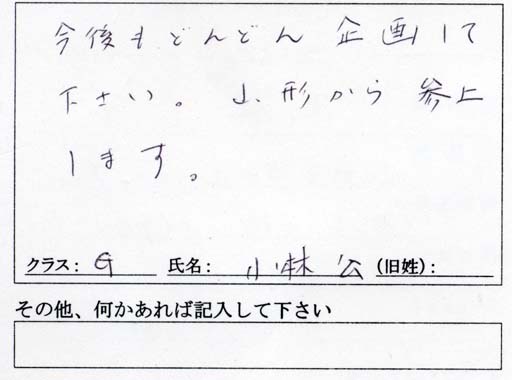 今後もどんどん企画して
下さい。山形から参上
します。
クラス: G 氏名: 小林 公 (旧姓):
その他、何かあれば記入して下さい